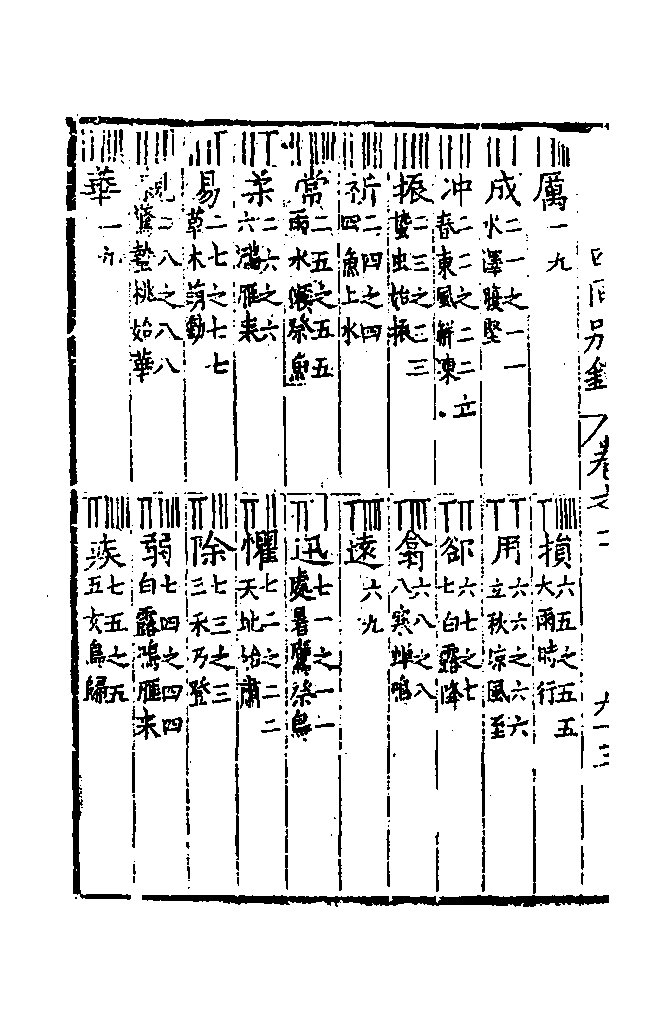 厲 一九
成 二一之一一 水澤腹堅
冲 二二之二二立春東風解凍
振 二三之三三 蟄虫始振
祈 二四之四四 魚上水
常 二五之五五 雨水獺祭魚
柔 二六之六六 鴻雁来
易 二七之七七 草木萌動
二八之八八 驚蟄桃始華
華 一九
損 六五之五五 大雨時行
用 六六之六六 立秋凉風至
郤 六七之七七 白露降
翕 六八之八八 寒蝉鳴
遠 六九
迅 七一之一一 處暑鷹祭鳥
懼 七二之二二 天地始肅
除 七三之三三 禾乃登
弱 七四之四四 白露鴻雁来
疾 七五之五五 玄鳥歸
卷之一